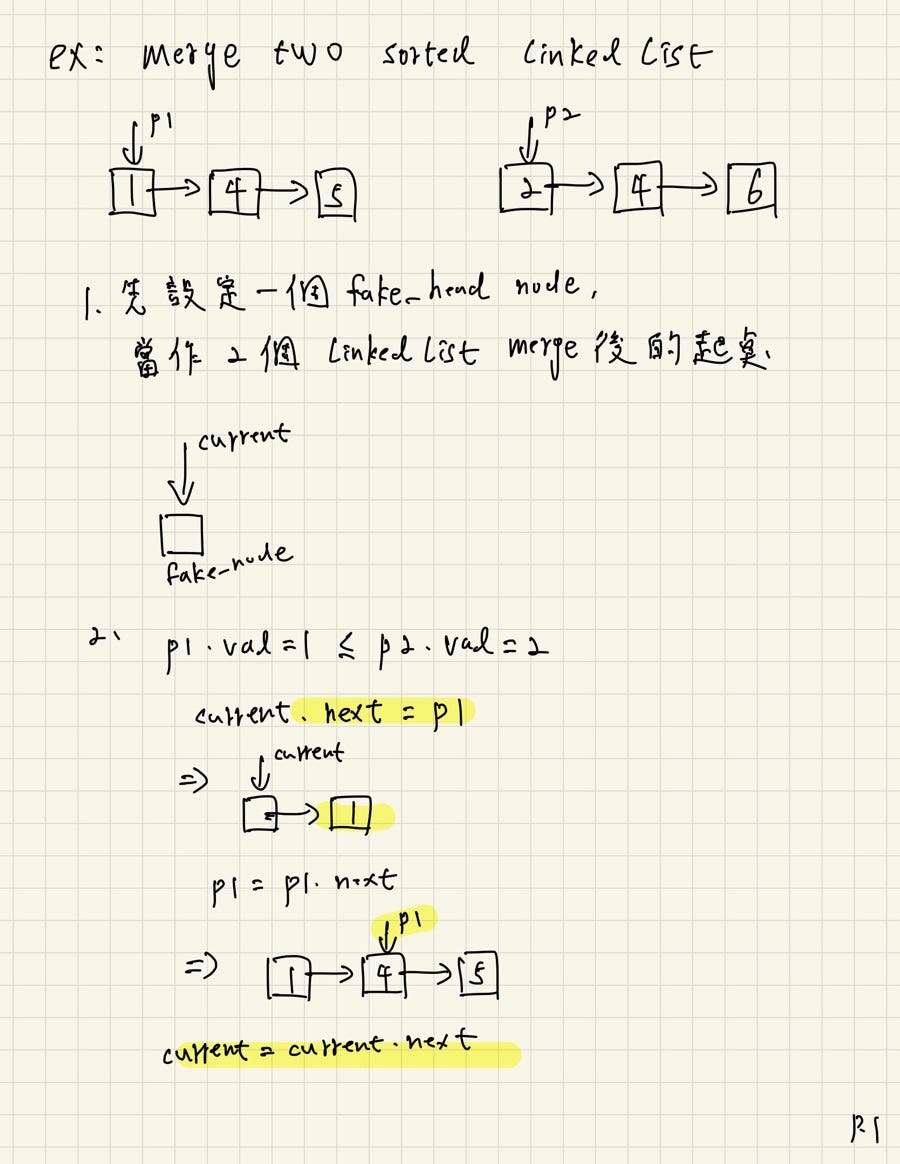 ex: merge two sorted Linked List
p1 p2
1 4 5 2 4 6
1. 先設定一個 fake-head node,
當作 2 個 Linked List merge 後的起點.
current
fake-node
2、 p1.val = 1 ≤ p2.val = 2
current.next = p1
current
⇒ 1
p1 = p1.next
p1
⇒ 1 4 5
current = current.next
P.1